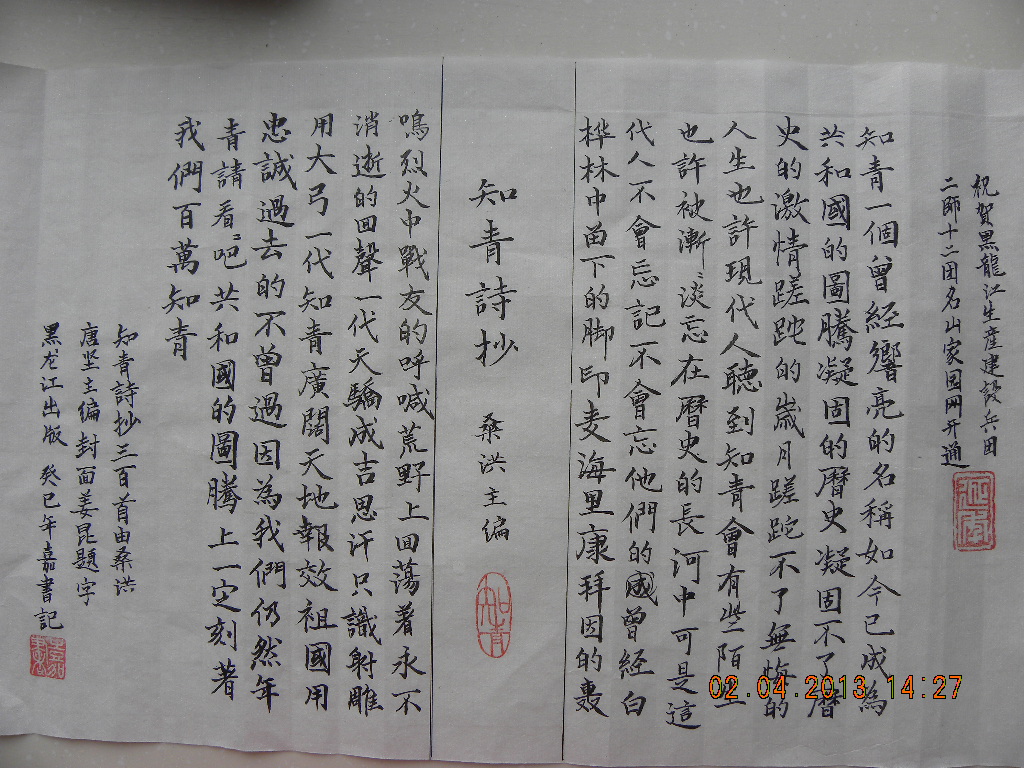 祝賀黑龍江生產建設兵团
二師十二团名山家园网开通
知青一個曾經響亮的名稱如今已成為
共和國的圖騰凝固的曆史凝固不了曆
史的激情蹉跎的歲月蹉跎不了無悔的
人生也許現代人聽到知青會有些陌生
也許被漸〻淡忘在曆史的長河中可是這
代人不會忘記不會忘他們的國曾經白
桦林中留下的脚印麦海里康拜因的轰
知青詩抄
桑洪主编
鳴烈火中戰友的呼喊荒野上回蕩着永不
消逝的回聲一代天驕成吉思汗只識射雕
用大弓一代知青廣闊天地報效祖國用
忠誠過去的不曾過因為我們仍然年
青請看〻吧共和國的圖騰上一定刻著
我們百萬知青
知青詩抄三百首由桑洪
唐坚主编封面姜昆题字
黑龙江出版 癸巳年嘉書記
知青
02.04.2013 14:27